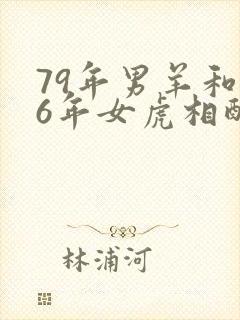 79年男羊和
6年女虎相配
林浦河